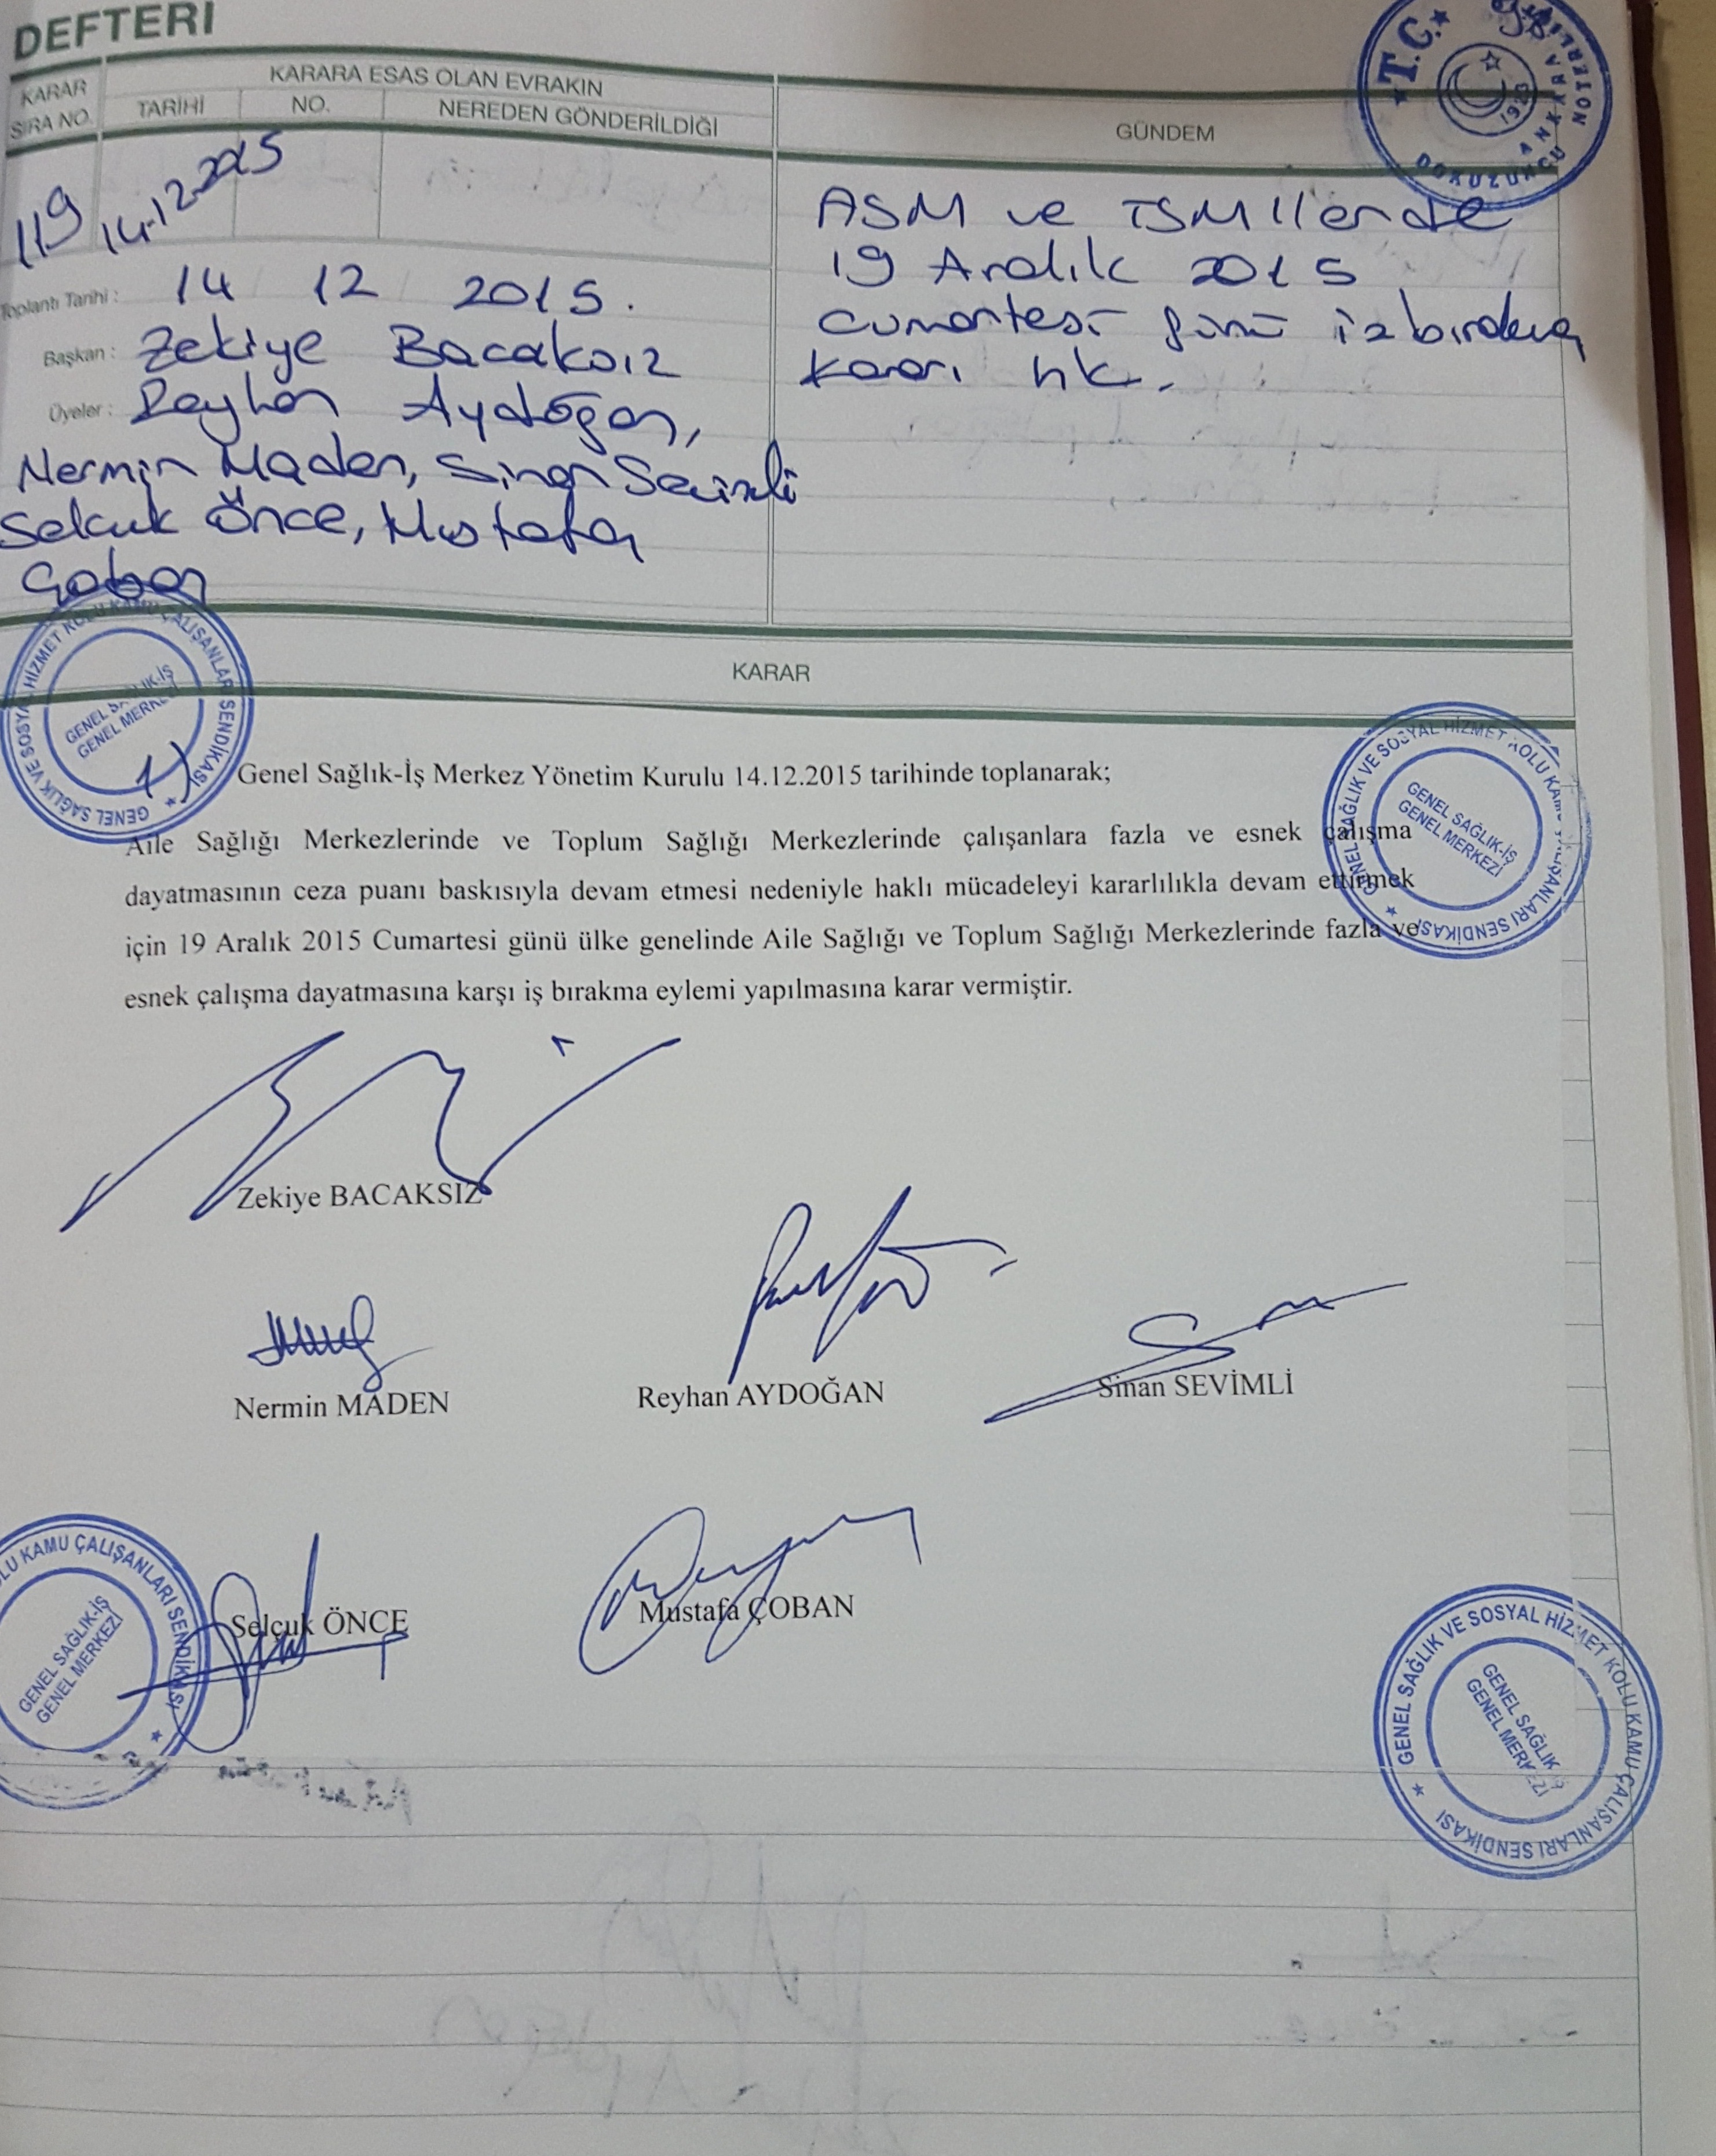 DEFTERİ
KARAR SIRA NO.
KARARA ESAS OLAN EVRAKIN
TARİHİ NO. NEREDEN GÖNDERİLDİĞİ
GÜNDEM
T.C.
ANKARA
DOKUZUNCU
NOTERLİĞİ
1923
119 14.12.2015
Toplantı Tarihi : 14 12 2015.
Başkan : Zekiye Bacaksız
Üyeler : Reyhan Aydoğan,
Nermin Maden, Sinan Sevimli
Selçuk Önce, Mustafa
Çoban
ASM ve TSM'lerde
19 Aralık 2015
Cumartesi günü iş bırakma
kararı hk.
KARAR
GENEL SAĞLIK VE SOSYAL HİZMET KOLU KAMU ÇALIŞANLARI SENDİKASI
GENEL SAĞLIK-İŞ
GENEL MERKEZİ
GENEL SAĞLIK VE SOSYAL HİZMET KOLU KAMU ÇALIŞANLARI SENDİKASI
GENEL SAĞLIK-İŞ
GENEL MERKEZİ
1) Genel Sağlık-İş Merkez Yönetim Kurulu 14.12.2015 tarihinde toplanarak;
Aile Sağlığı Merkezlerinde ve Toplum Sağlığı Merkezlerinde çalışanlara fazla ve esnek çalışma
dayatmasının ceza puanı baskısıyla devam etmesi nedeniyle haklı mücadeleyi kararlılıkla devam ettirmek
için 19 Aralık 2015 Cumartesi günü ülke genelinde Aile Sağlığı ve Toplum Sağlığı Merkezlerinde fazla ve
esnek çalışma dayatmasına karşı iş bırakma eylemi yapılmasına karar vermiştir.
Zekiye BACAKSIZ
Nermin MADEN Reyhan AYDOĞAN Sinan SEVİMLİ
Selçuk ÖNCE Mustafa ÇOBAN
KAMU ÇALIŞANLARI SENDİKASI
GENEL SAĞLIK-İŞ
GENEL MERKEZİ
GENEL SAĞLIK VE SOSYAL HİZMET KOLU KAMU ÇALIŞANLARI SENDİKASI
GENEL SAĞLIK-İŞ
GENEL MERKEZİ